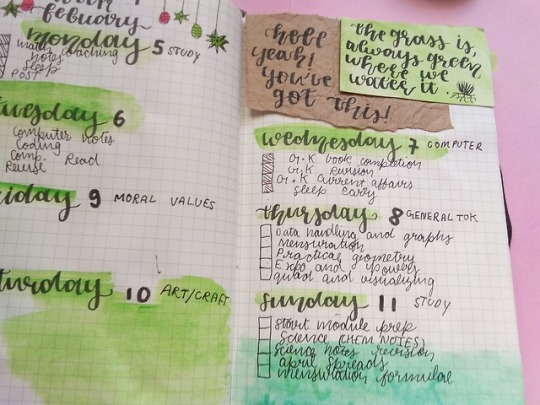 february
monday 5 STUDY
notes
sleep
POST
tuesday 6
computer notes
Coding
comp. Read
Reuse
friday 9 MORAL VALUES
saturday 10 ART/CRAFT
hell
yeah!
You've
got this!
the grass is
always green
where we
water it.
wednesday 7 COMPUTER
G.K book completion
G.K revision
G.K current affairs
sleep early
thursday 8 GENERAL TOK
Data handling and graphs
Mensuration
Practical geometry
Expo and powers
quad and visualizing
sunday 11 STUDY
start module prep
Science (CHEM NOTES)
Science notes revision
april spreads
mensuration formulae